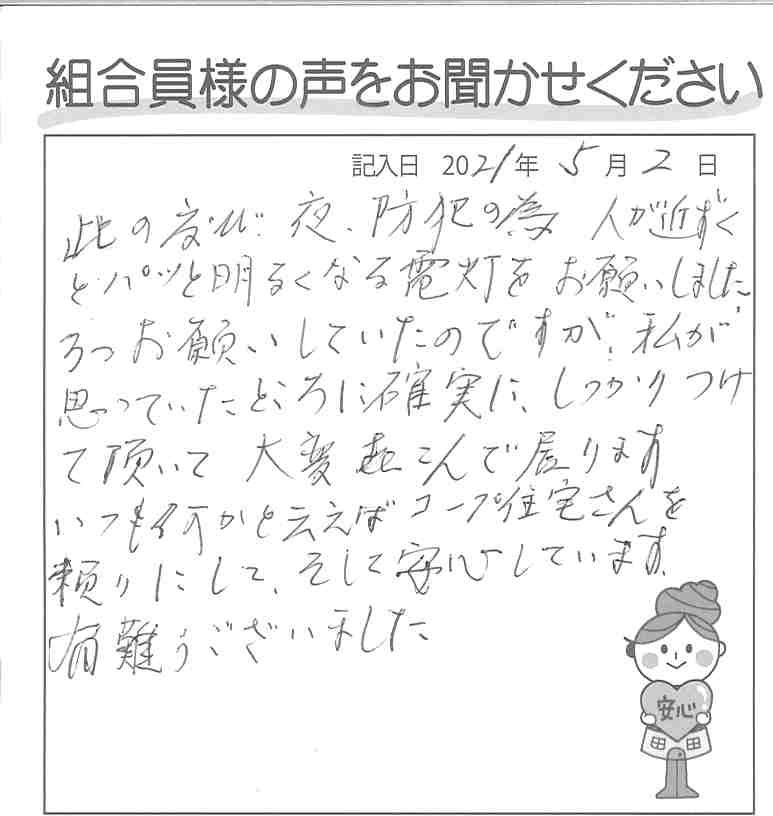 組合員様の声をお聞かせください
記入日 2021年 5月 2日
此の度び 夜、防犯の為 人が近ずく
とパッと明るくなる電灯をお願いしました
3つお願いしていたのですが、私が
思っていたところに確実に、しっかりつけ
て頂いて 大変 こんで居ります
いつも何かと云えばコープ住宅さんを
頼りにして、そして安心しています。
有難うございました
安心